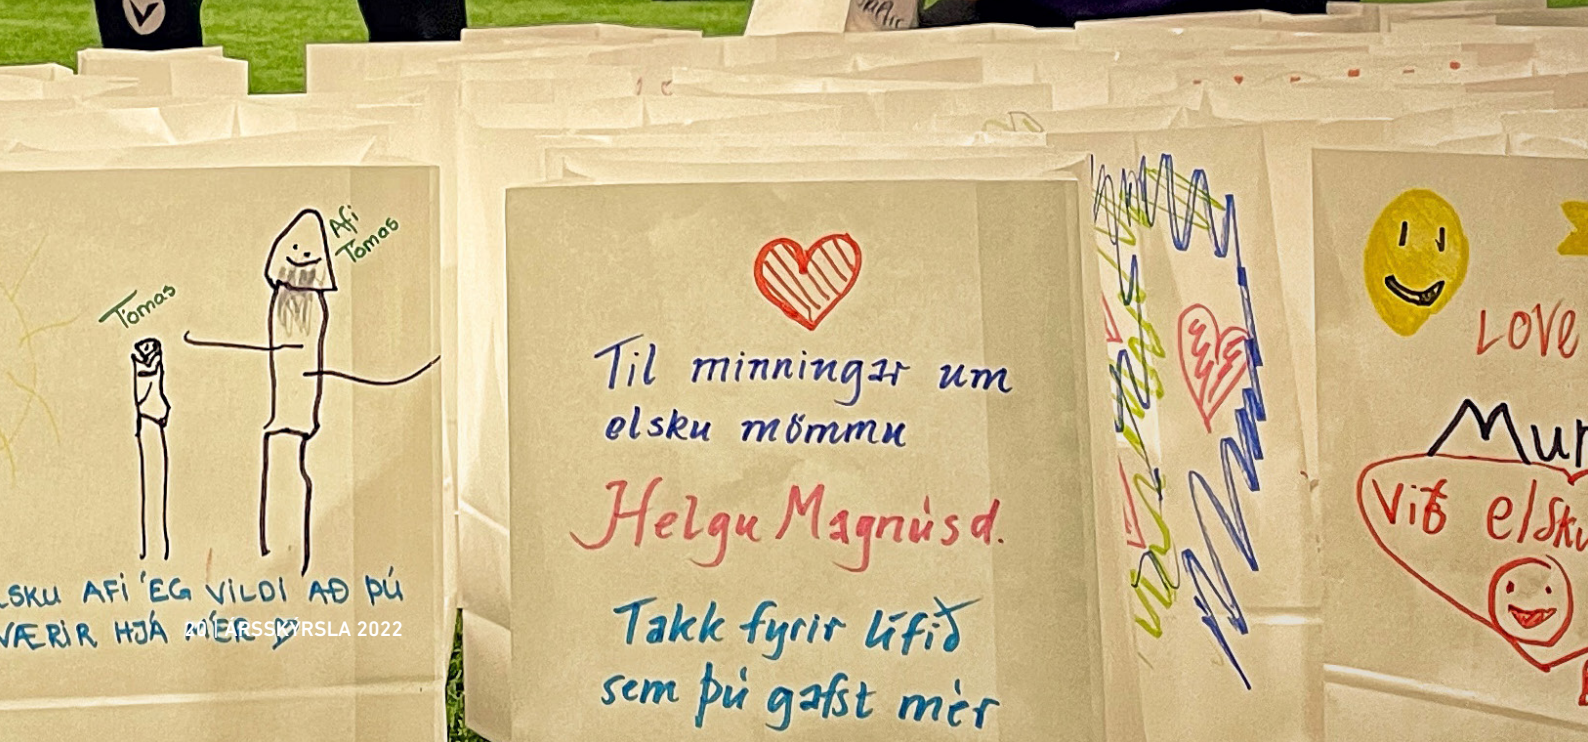 Afi
Tomas
Tomas
LSKU AFI ÉG VILDI AÐ ÞÚ
VÆRIR HJÁ MÉR
20 | ÁRSSKÝRSLA 2022
Til minningar um
elsku mömmu
Helgu Magnúsd.
Takk fyrir lífið
sem þú gafst mér
LOVE
Mun
Við elsku